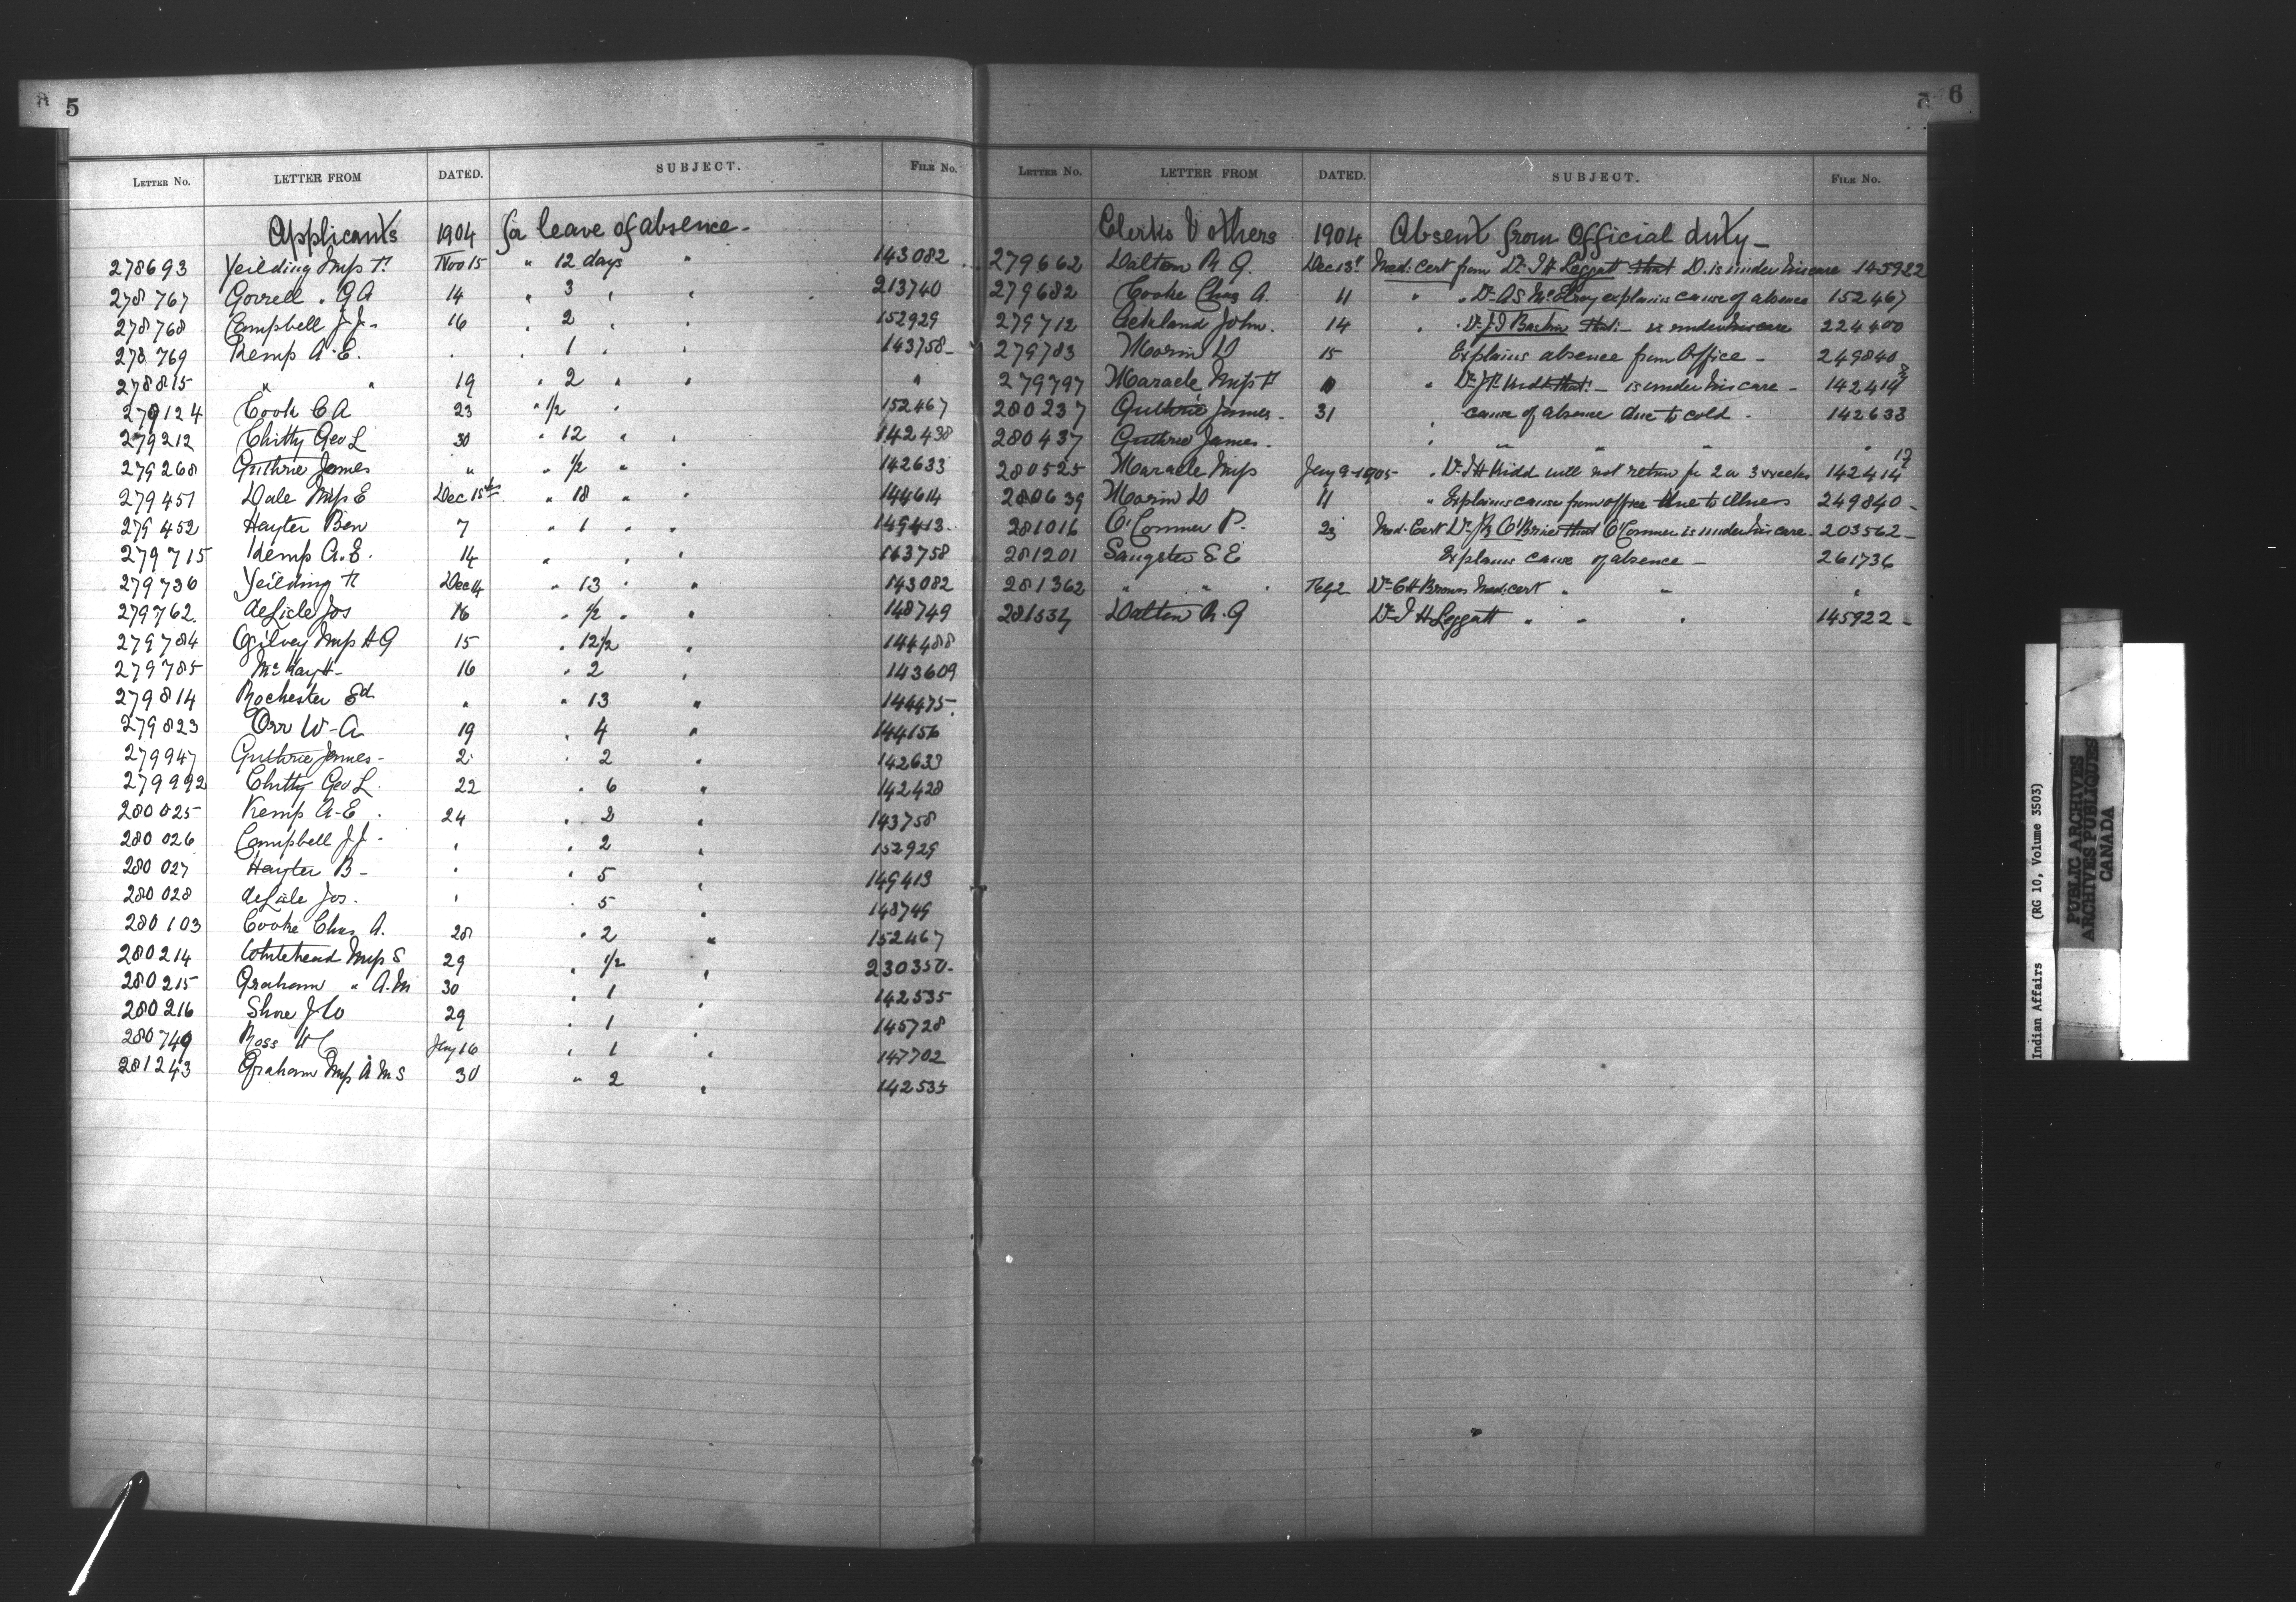 5
LETTER No. LETTER FROM DATED. SUBJECT. FILE No.
Applicants 1904 for leave of absence -
278693 Yeilding Miss F. Nov 15 " 12 days " 143082
278767 Gorrell . G A 14 " 3 " " 213740
278768 Campbell J. J. 16 " 2 " " 152929
278769 Kemp A. E. " " 1 " " 143758
278815 " " 19 " 2 " " "
279124 Cook C A 23 " 1/2 " 152467
279212 Chitty Geo L 30 " 12 " " 142438
279268 Guthrie James " " 1/2 " " 142633
279451 Dale Miss E Dec 15th " 18 " " 144614
279452 Hayter Ben 7 " 1 " " 149413
279715 Kemp A. E. 14 " " " 143758
279736 Yeilding F Dec 14 " 13 " " 143082
279762 deLisle Jos 16 " 1/2 " " 148749
279784 Ogilvey Miss H G 15 " 12 1/2 " 144488
279785 McKay H- 16 " 2 " 143609
279814 Rochester Ed " " 13 " 144475
279823 Orr W-A 19 " 4 " 144156
279947 Guthrie James- 2 " 2 " 142633
279992 Chitty Geo L. 22 " 6 " 142428
280025 Kemp A-E . 24 " 2 " 143758
280026 Campbell J J- " " 2 " 152929
280027 Hayter B- " " 5 " 149413
280028 deLisle Jos. " " 5 " 148749
280103 Cooke Chas A. 28 " 2 " 152467
280214 Whitehead Miss S 29 " 1/2 " 230350-
280215 Graham " A.M 30 " 1 " 142535
280216 Shore J W 29 " 1 " 145728
280749 Ross W C Jany 16 " 1 " 147702
281243 Graham Miss A M S 30 " 2 " 142535
6
LETTER No. LETTER FROM DATED. SUBJECT. FILE No.
Clerks & others 1904 Absent from Official duty -
279662 Dalton R. G. Dec 13th Med: Cert from Dr. J H Leggatt that D. is under his care 145922
279682 Cooke Chas A. 11 " " Dr A S McElroy explains cause of absence 152467
279712 Ackland John. 14 " Dr J I Baskin that - is under his care 224400
279783 Morin D 15 Explains absence from Office - 249840
279797 Maracle Miss F " Dr J F Kidd that - is under his care - 142414
280237 Guthrie James - 31 " cause of absence due to cold - 142633
280437 Guthrie James . " " " " "
280525 Maracle Miss Jany 9-1905- " Dr J F Kidd will not return for 2 or 3 weeks 142414 17
280639 Morin D 11 " Explains cause from office due to illness 249840 -
281016 O'Connor P. 23 Med. Cert Dr J R O'Brien that O'Connor is under his care- 203562-
281201 Sangster S E Explains cause of absence - 261736
281362 " " " Feby 2 Dr C H Brown Med: cert " " "
281534 Dalton R. G Dr J H Leggatt " " " 145922 -
Indian Affairs (RG 10, Volume 3503)
PUBLIC ARCHIVES
ARCHIVES PUBLIQUES
CANADA